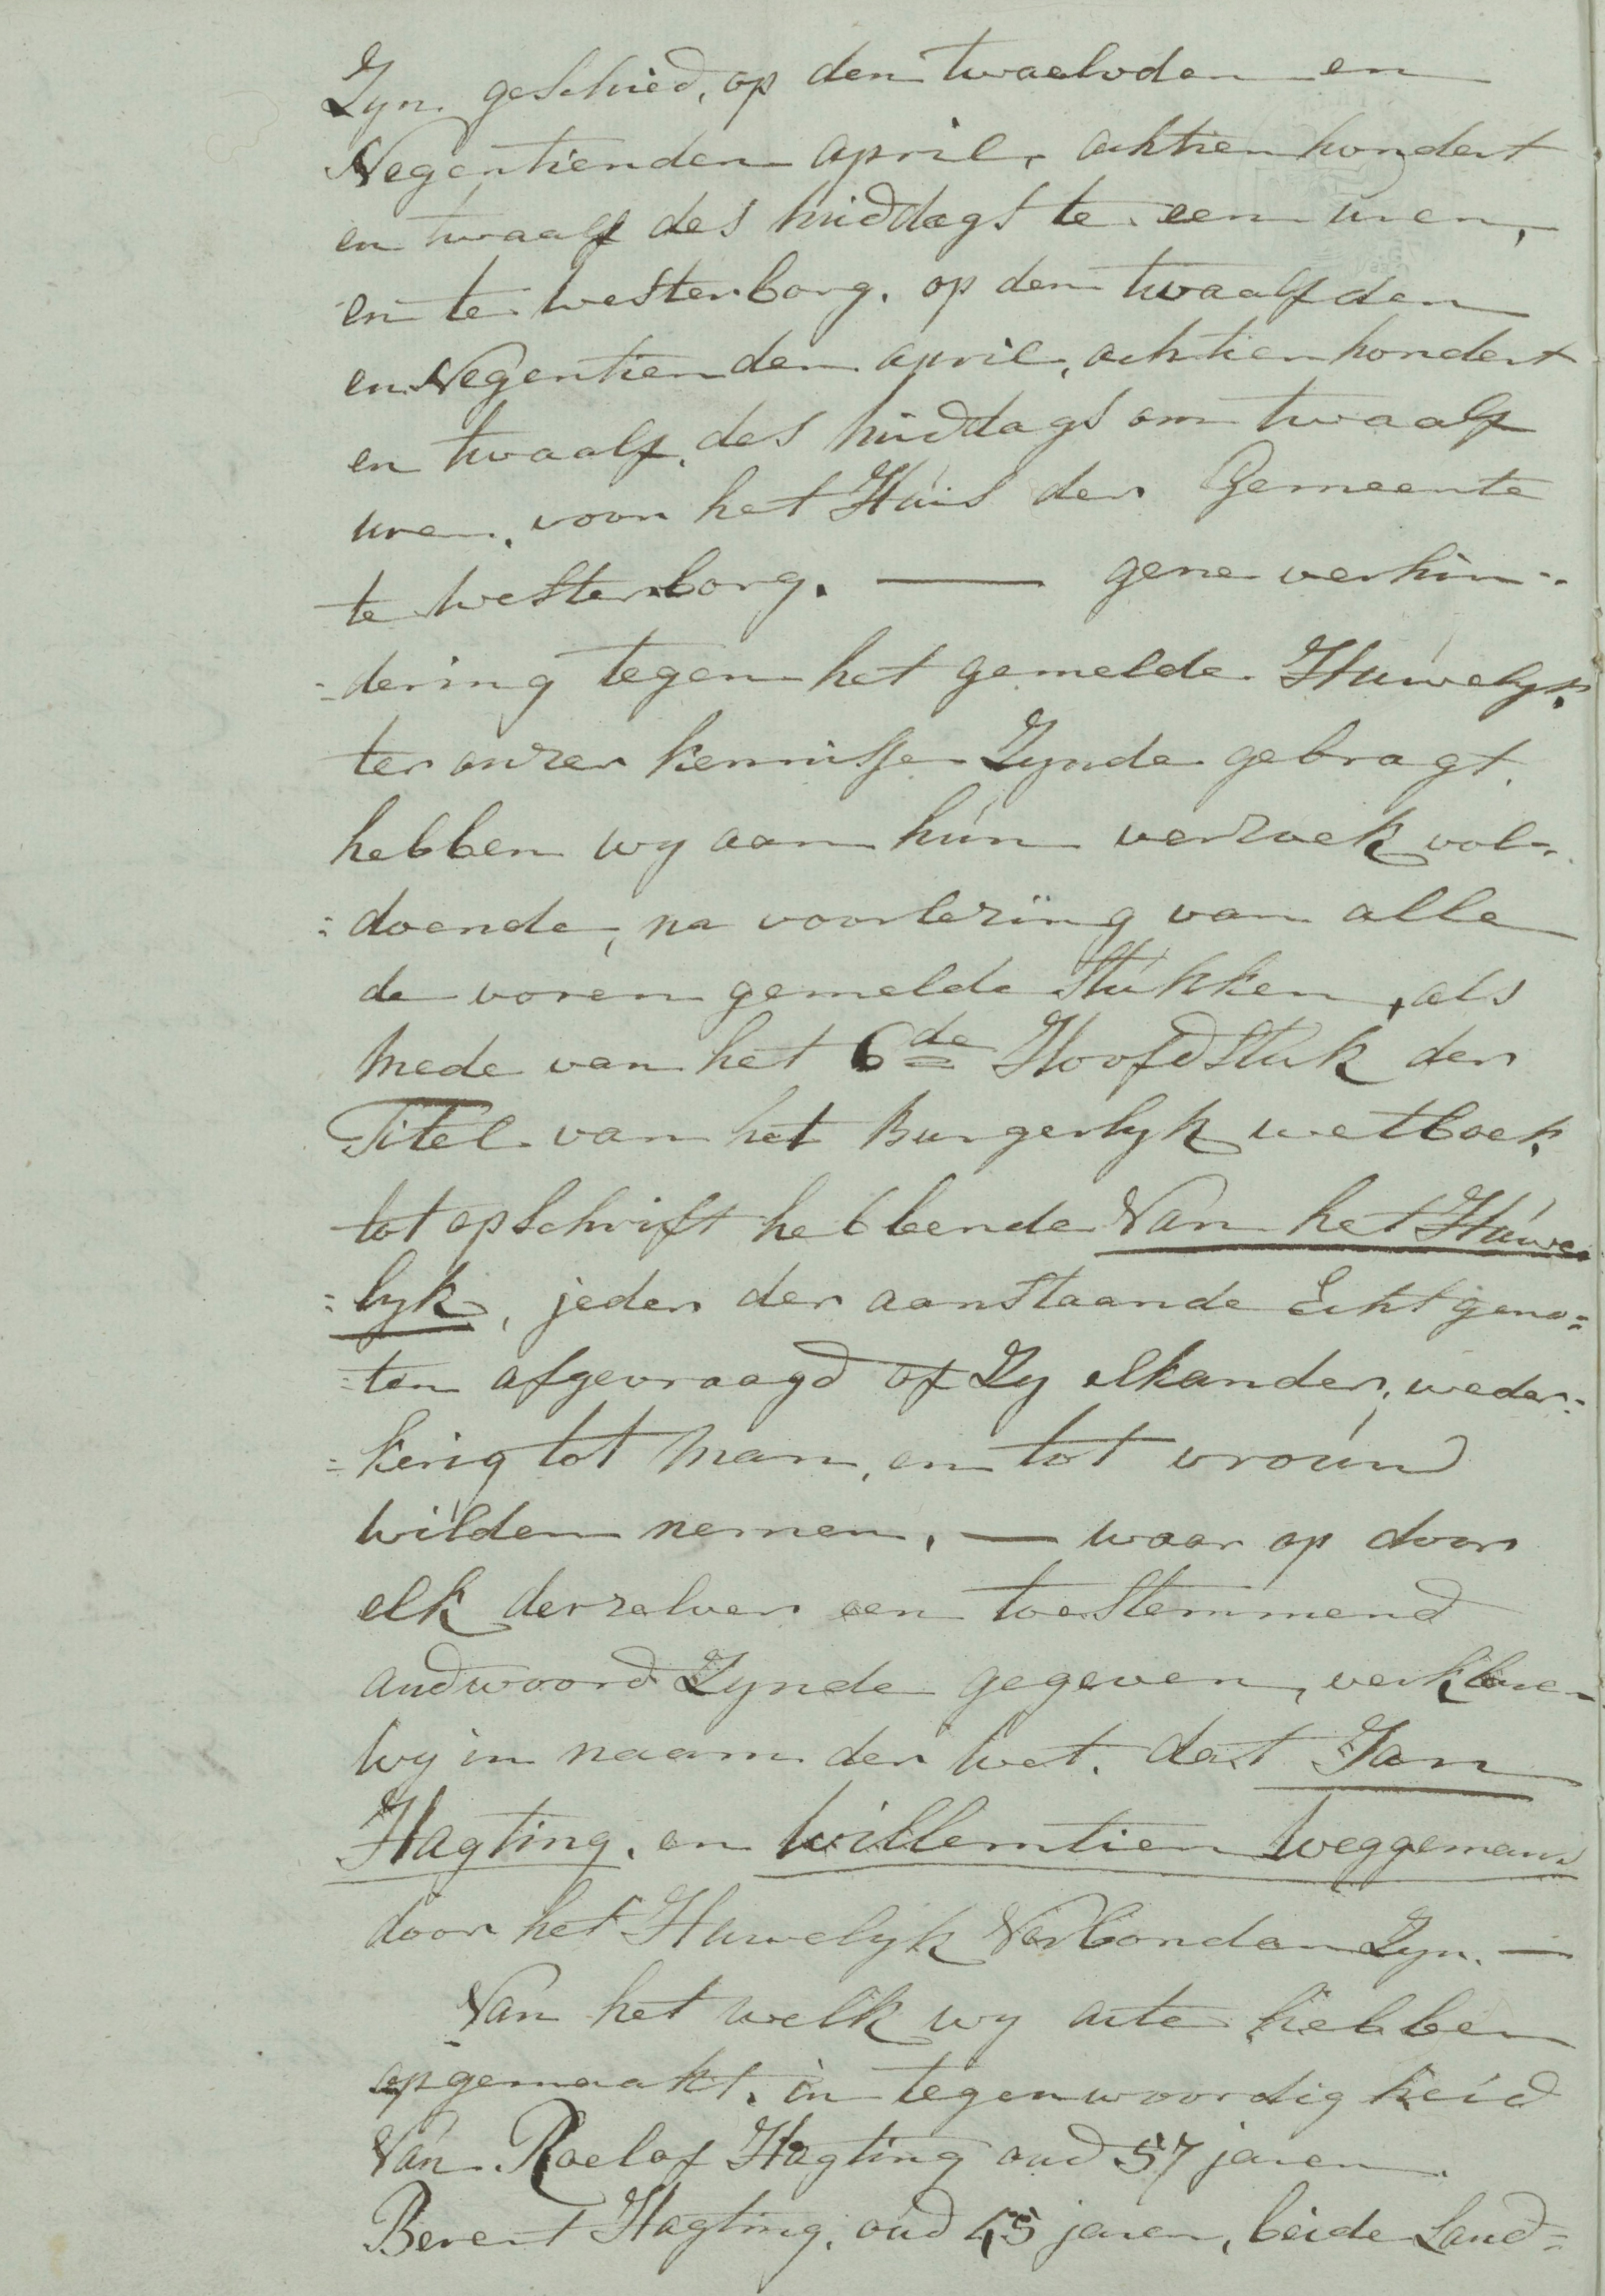 Zyn geschied, op den twaalvden en
Negentienden april, achtien hondert
en twaalf des middags te een uren,
en te Westerborg. op den twaalfden
en Negentienden april, achtien hondert
en twaalf, des middags om twaalf
uren, voor het Huis der Gemeente
te Westerborg. — gene verhin-
=dering tegen het gemelde Huwelyk,
ter onzer kennisse Zynde gebragt,
hebben wy aan hun verzoek vol=
=doende, na voorlezing van alle
de voren gemelde Stukken, als
mede van het 6de Hoofdstuk der
Titel van het Burgerlyk wetboek,
tot opschrift hebbende Van het Huwe=
=lyk, jeder der aanstaande Echtgeno=
=ten afgevraagd of Zy elkander, weder=
=kerig tot Man, en tot vrouw
wilden nemen. — waar op door
elk derzelver een toestemmend
andwoord Zynde gegeven, verklaren
wy in naam der wet. dat Jan
Hagting. en Willemtien Weggemans
door het Huwelyk Verbonden Zyn. —
Van het welk wy acte hebben
opgemaakt. in tegenwoordigheid
Van Roelof Hagting oud 57 jaren.
Berent Hagting, oud 45 jaren, beide Land=